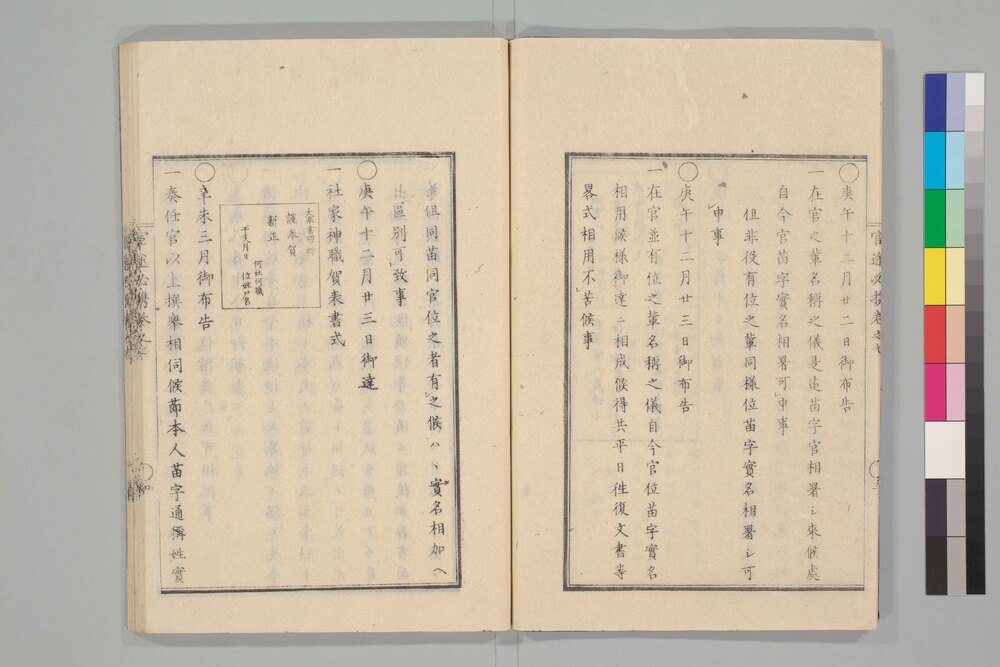 ○庚午十二月廿二日御布告
一在官之輩名稱之儀是迄苗字官相署シ來候處
自今官苗字實名相署可申事
但非役有位之輩同様位苗字實名相署シ可
申事
○庚午十二月廿三日御布告
一在官並有位之輩名稱之儀自今官位苗字實名
相用候様御達ニ相成候得共平日徃復文書等
畧式相用不苦候事
但同苗同官位之者有之候ハヽ實名相加ヘ
區別可致事
○庚午十二月廿三日御達
一社家神職賀表書式
謹奉賀
新正
干支月日
何社何職
位姓尸名
○辛未三月御布告
一奏任官以上撰擧相伺候節本人苗字通稱姓實